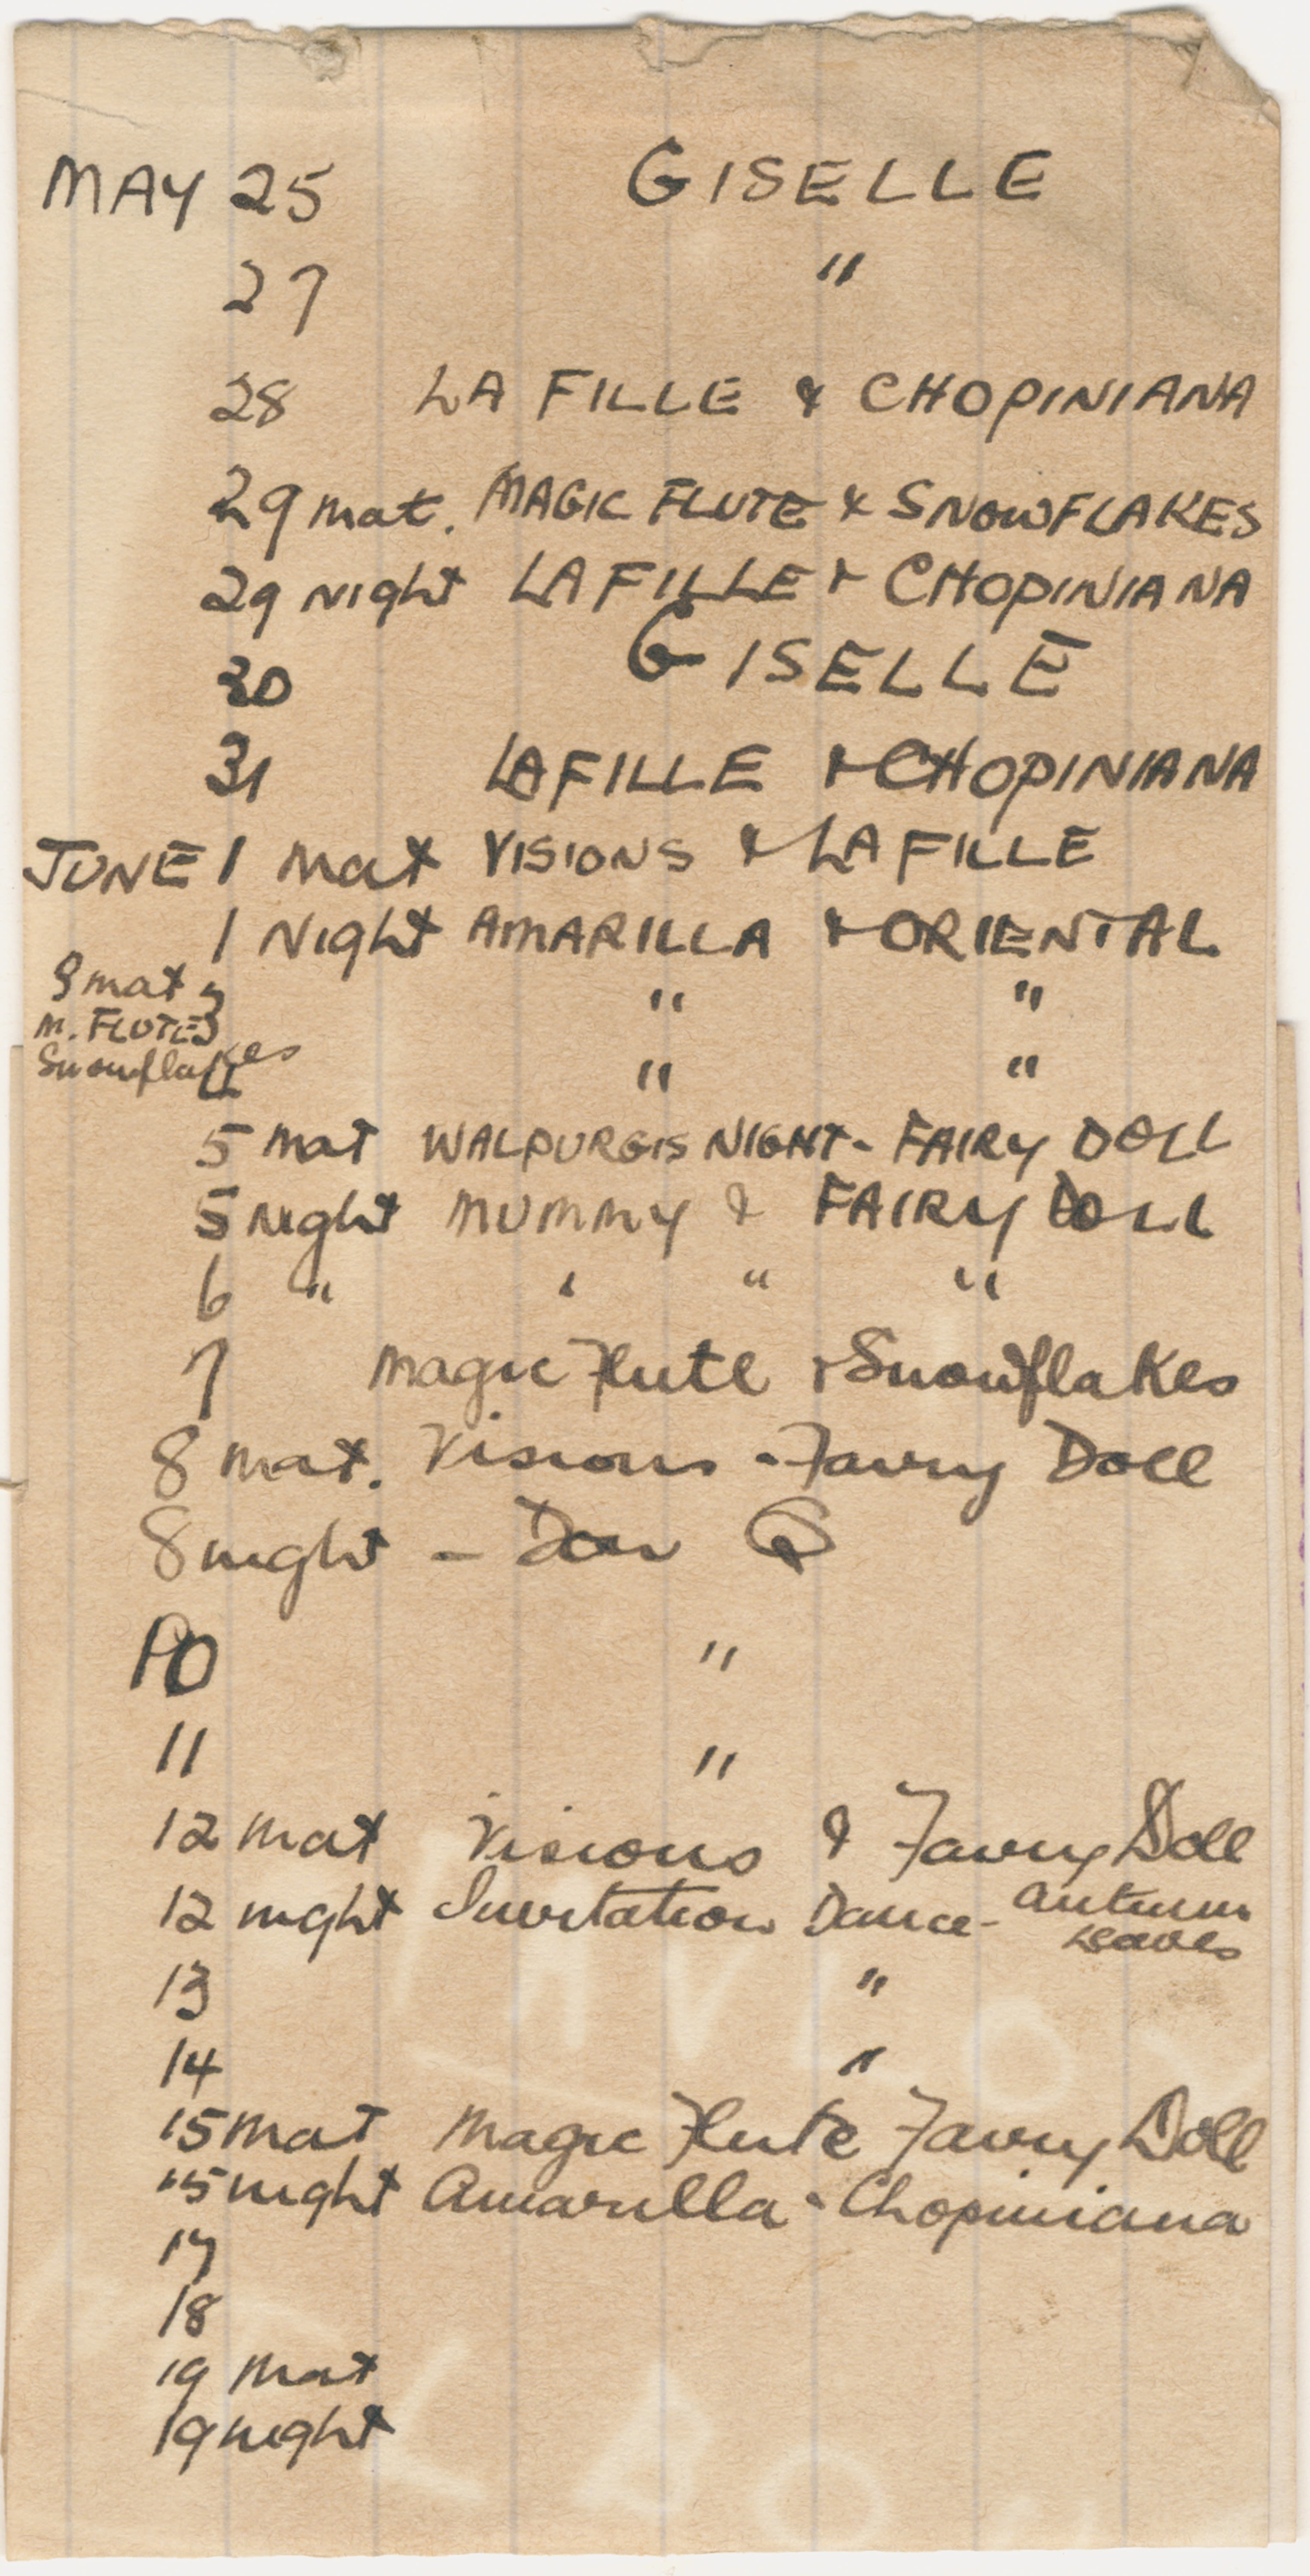 MAY 25 GISELLE
27 "
28 LA FILLE & CHOPINIANA
29 mat. MAGIC FLUTE & SNOWFLAKES
29 Night LA FILLE & CHOPINIANA
30 GISELLE
31 LA FILLE & CHOPINIANA
JUNE 1 mat VISIONS & LA FILLE
1 Night AMARILLA & ORIENTAL
3 mat 3 " "
M. FLUTE
Snowflakes
4 " "
5 mat WALPURGIS NIGHT - FAIRY DOLL
5 Night MUMMY & FAIRY DOLL
6 " " " "
7 Magic Flute & Snowflakes
8 mat. Visions - Fairy Doll
8 night - Don Q
10 "
11 "
12 mat Visions & Fairy Doll
12 night Invitation Dance - Autumn
Leaves
13 "
14 "
15 mat Magic Flute Fairy Doll
15 night Amarilla - Chopiniana
17
18
19 mat
19 night